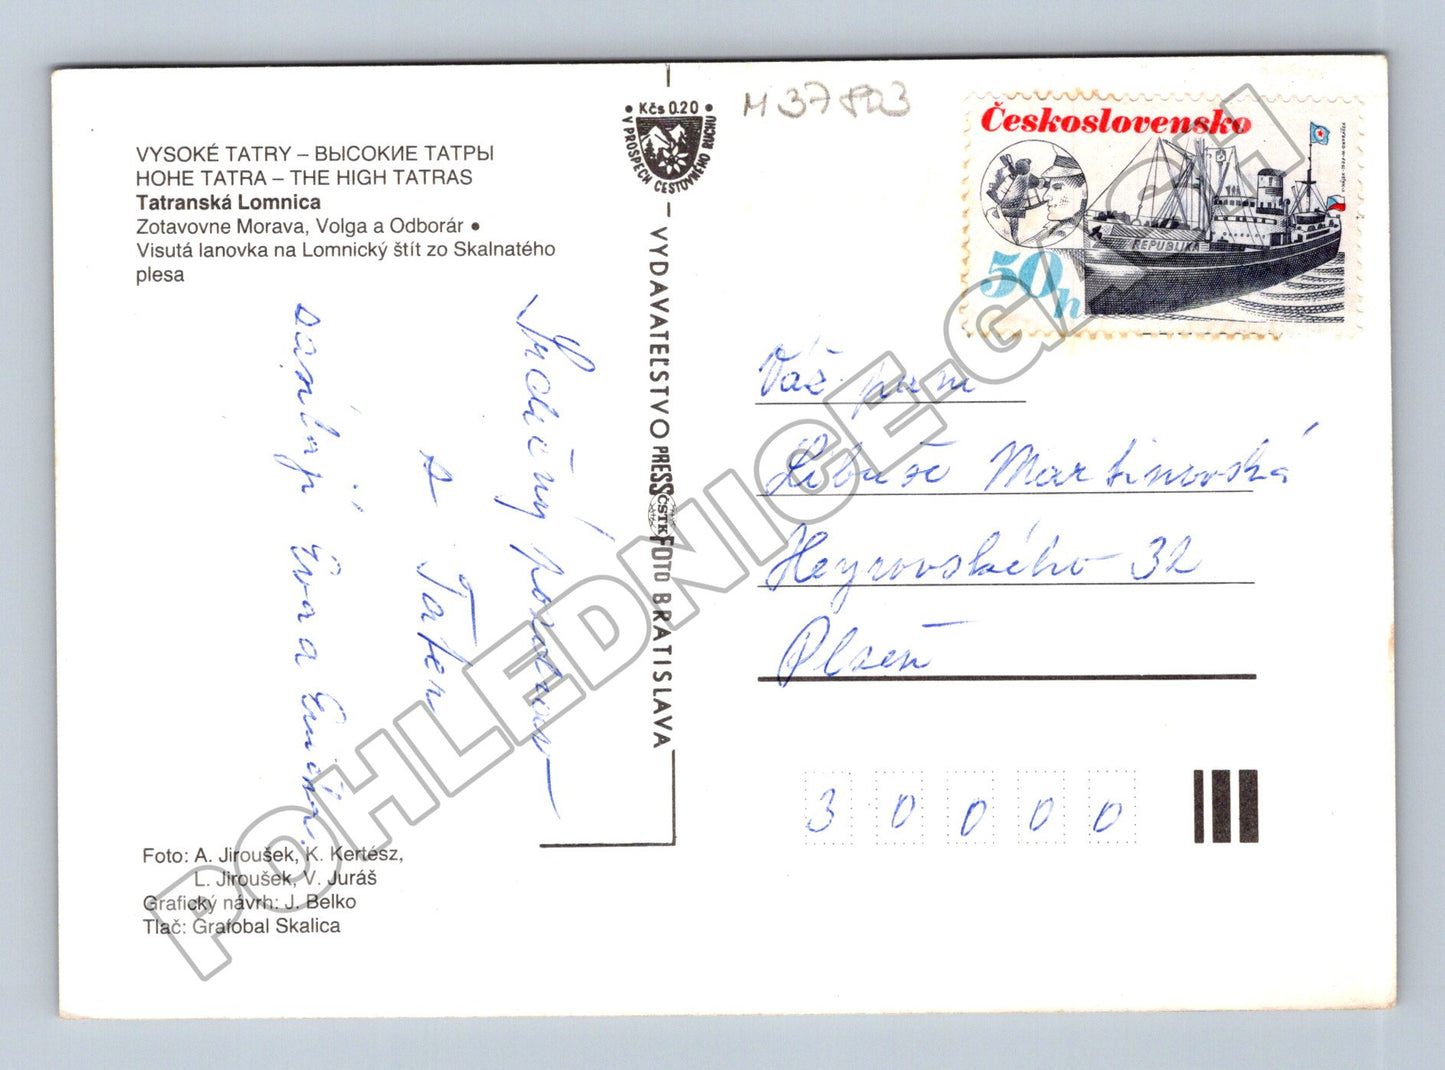 VYSOKÉ TATRY – ВЫСОКИЕ ТАТРЫ
HOHE TATRA – THE HIGH TATRAS
Tatranská Lomnica
Zotavovne Morava, Volga a Odborár •
Visutá lanovka na Lomnický štít zo Skalnatého
plesa
• Kčs 0.20 •
V PROSPECH CESTOVNÉHO RUCHU
M 37803
Československo
REPUBLIKA
50h
Srdečný pozdrav
z Tater
Eva a
VYDAVATEĽSTVO PRESSFOTO BRATISLAVA
ČSTK
Váž. paní
Libuše Martinovská
Heyrovského 32
Plzeň
30000
Foto: A. Jiroušek, K. Kertész,
L. Jiroušek, V. Juráš
Grafický návrh: J. Belko
Tlač: Grafobal Skalica
POHLEDNICE-GACH